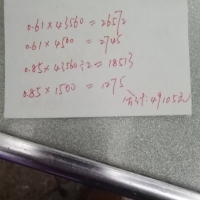 0.61×43560=26572
0.61×4500=2745
0.85×43560÷2=18513
0.85×1500=1275
合计:49105元